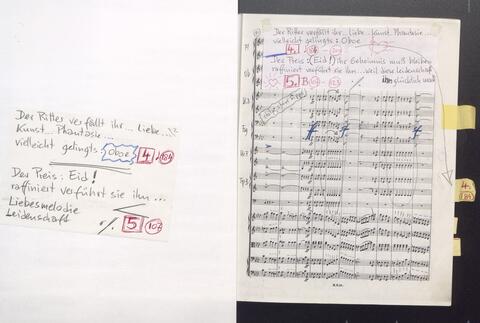 Der Ritter verfällt ihr... Liebe...
Kunst.. Phantasie...
vielleicht gelingts: Oboe 4. 184
Der Preis: Eid!
raffiniert verführt sie ihn...
Liebesmelodie
Leidenschaft
5 107
Der Ritter verfällt ihr.. Liebe.. Kunst.. Phantasie...
vielleicht gelingts: Oboe
4. 184
Der Preis: (Eid!) Ihr Geheimnis muß bleiben
raffiniert verführt sie ihn... weil diese Leidenschaft
5. B glücklich macht
Fl
Ob
Kl
Fg
Hr
Trp
4.
184